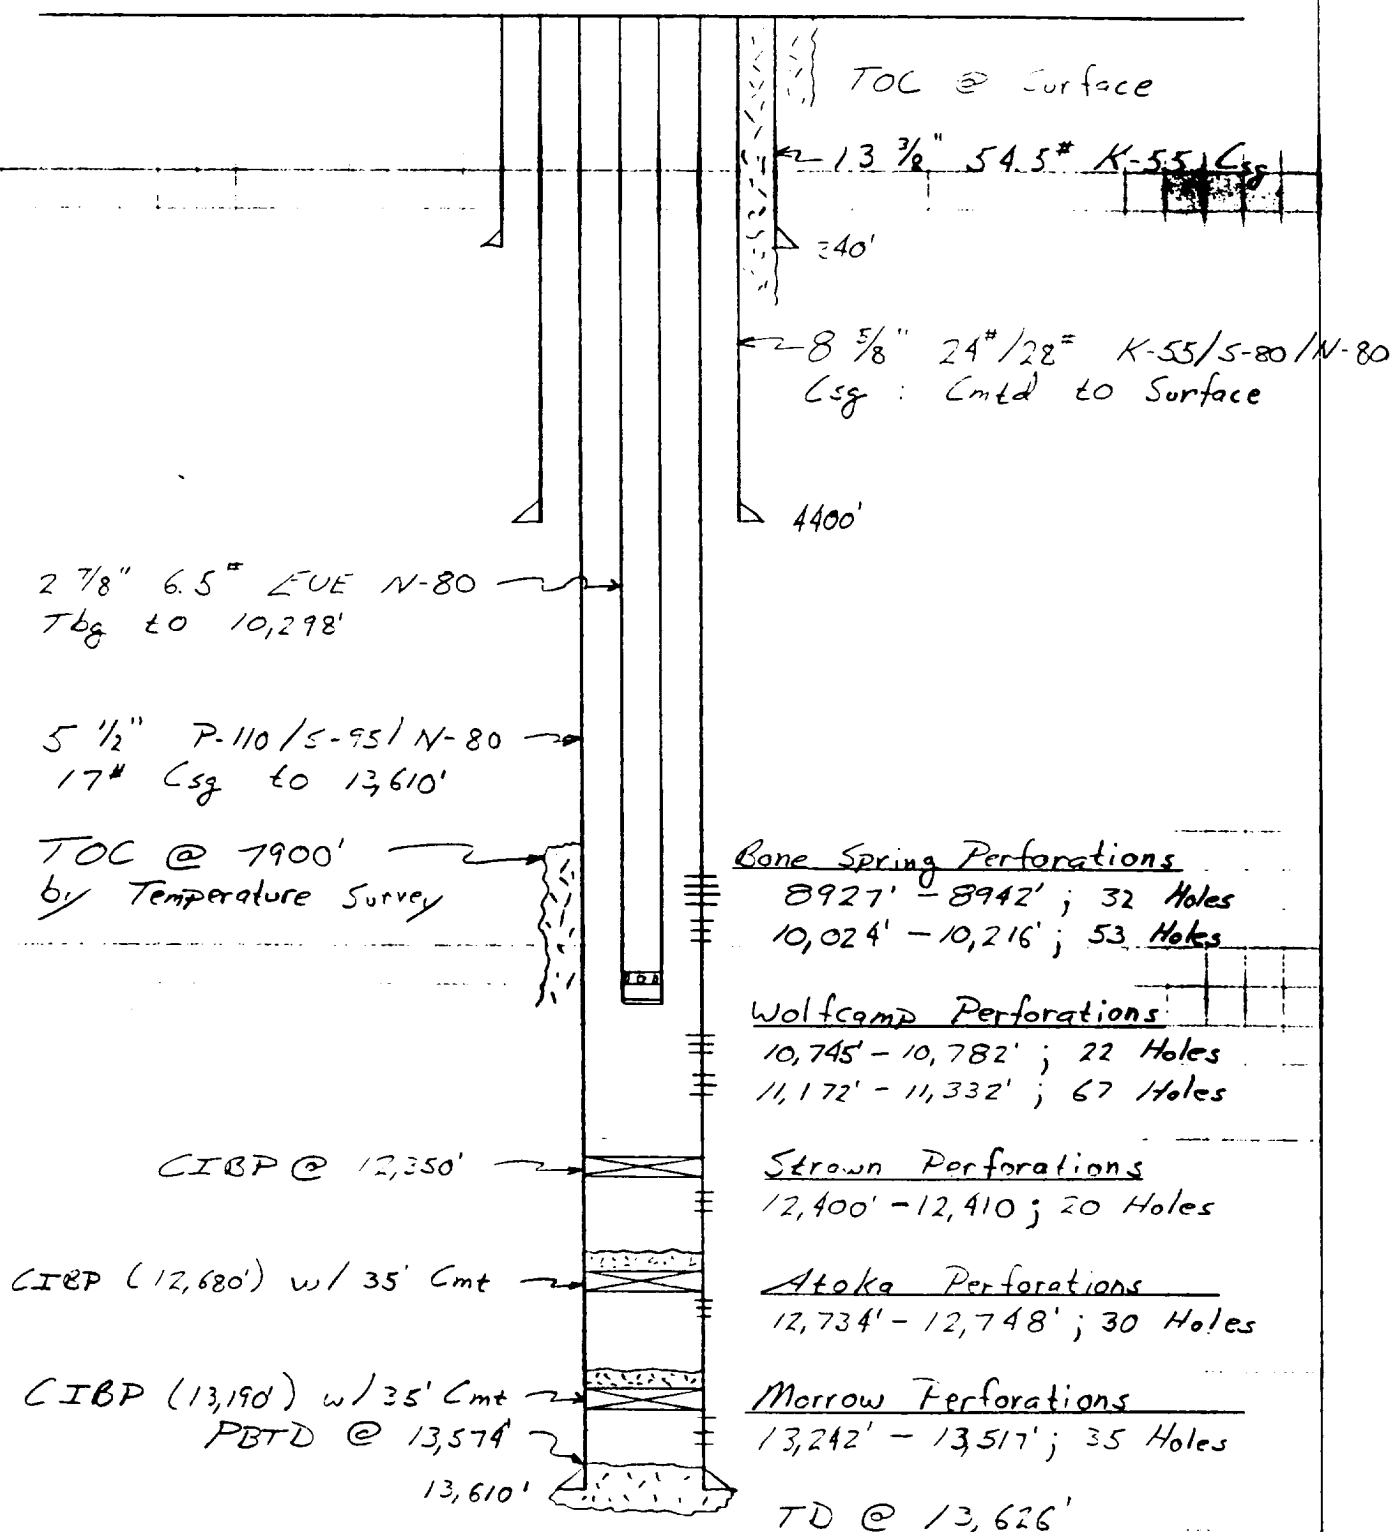 TOC @ Surface
13 3/8" 54.5# K-55 Csg
340'
8 5/8" 24#/28# K-55/S-80/N-80
Csg : Cmtd to Surface
4400'
2 7/8" 6.5# EUE N-80
Tbg to 10,298'
5 1/2" P-110/S-95/N-80
17# Csg to 13,610'
TOC @ 7900'
by Temperature Survey
Bone Spring Perforations
8927' - 8942' ; 32 Holes
10,024' - 10,216' ; 53 Holes
Wolfcamp Perforations
10,745' - 10,782' ; 22 Holes
11,172' - 11,332' ; 67 Holes
CIBP @ 12,350'
Strawn Perforations
12,400' - 12,410 ; 20 Holes
CIBP (12,680') w/ 35' Cmt
Atoka Perforations
12,734' - 12,748' ; 30 Holes
CIBP (13,190') w/ 35' Cmt
Morrow Perforations
PBTD @ 13,574'
13,242' - 13,517' ; 35 Holes
13,610'
TD @ 13,626'